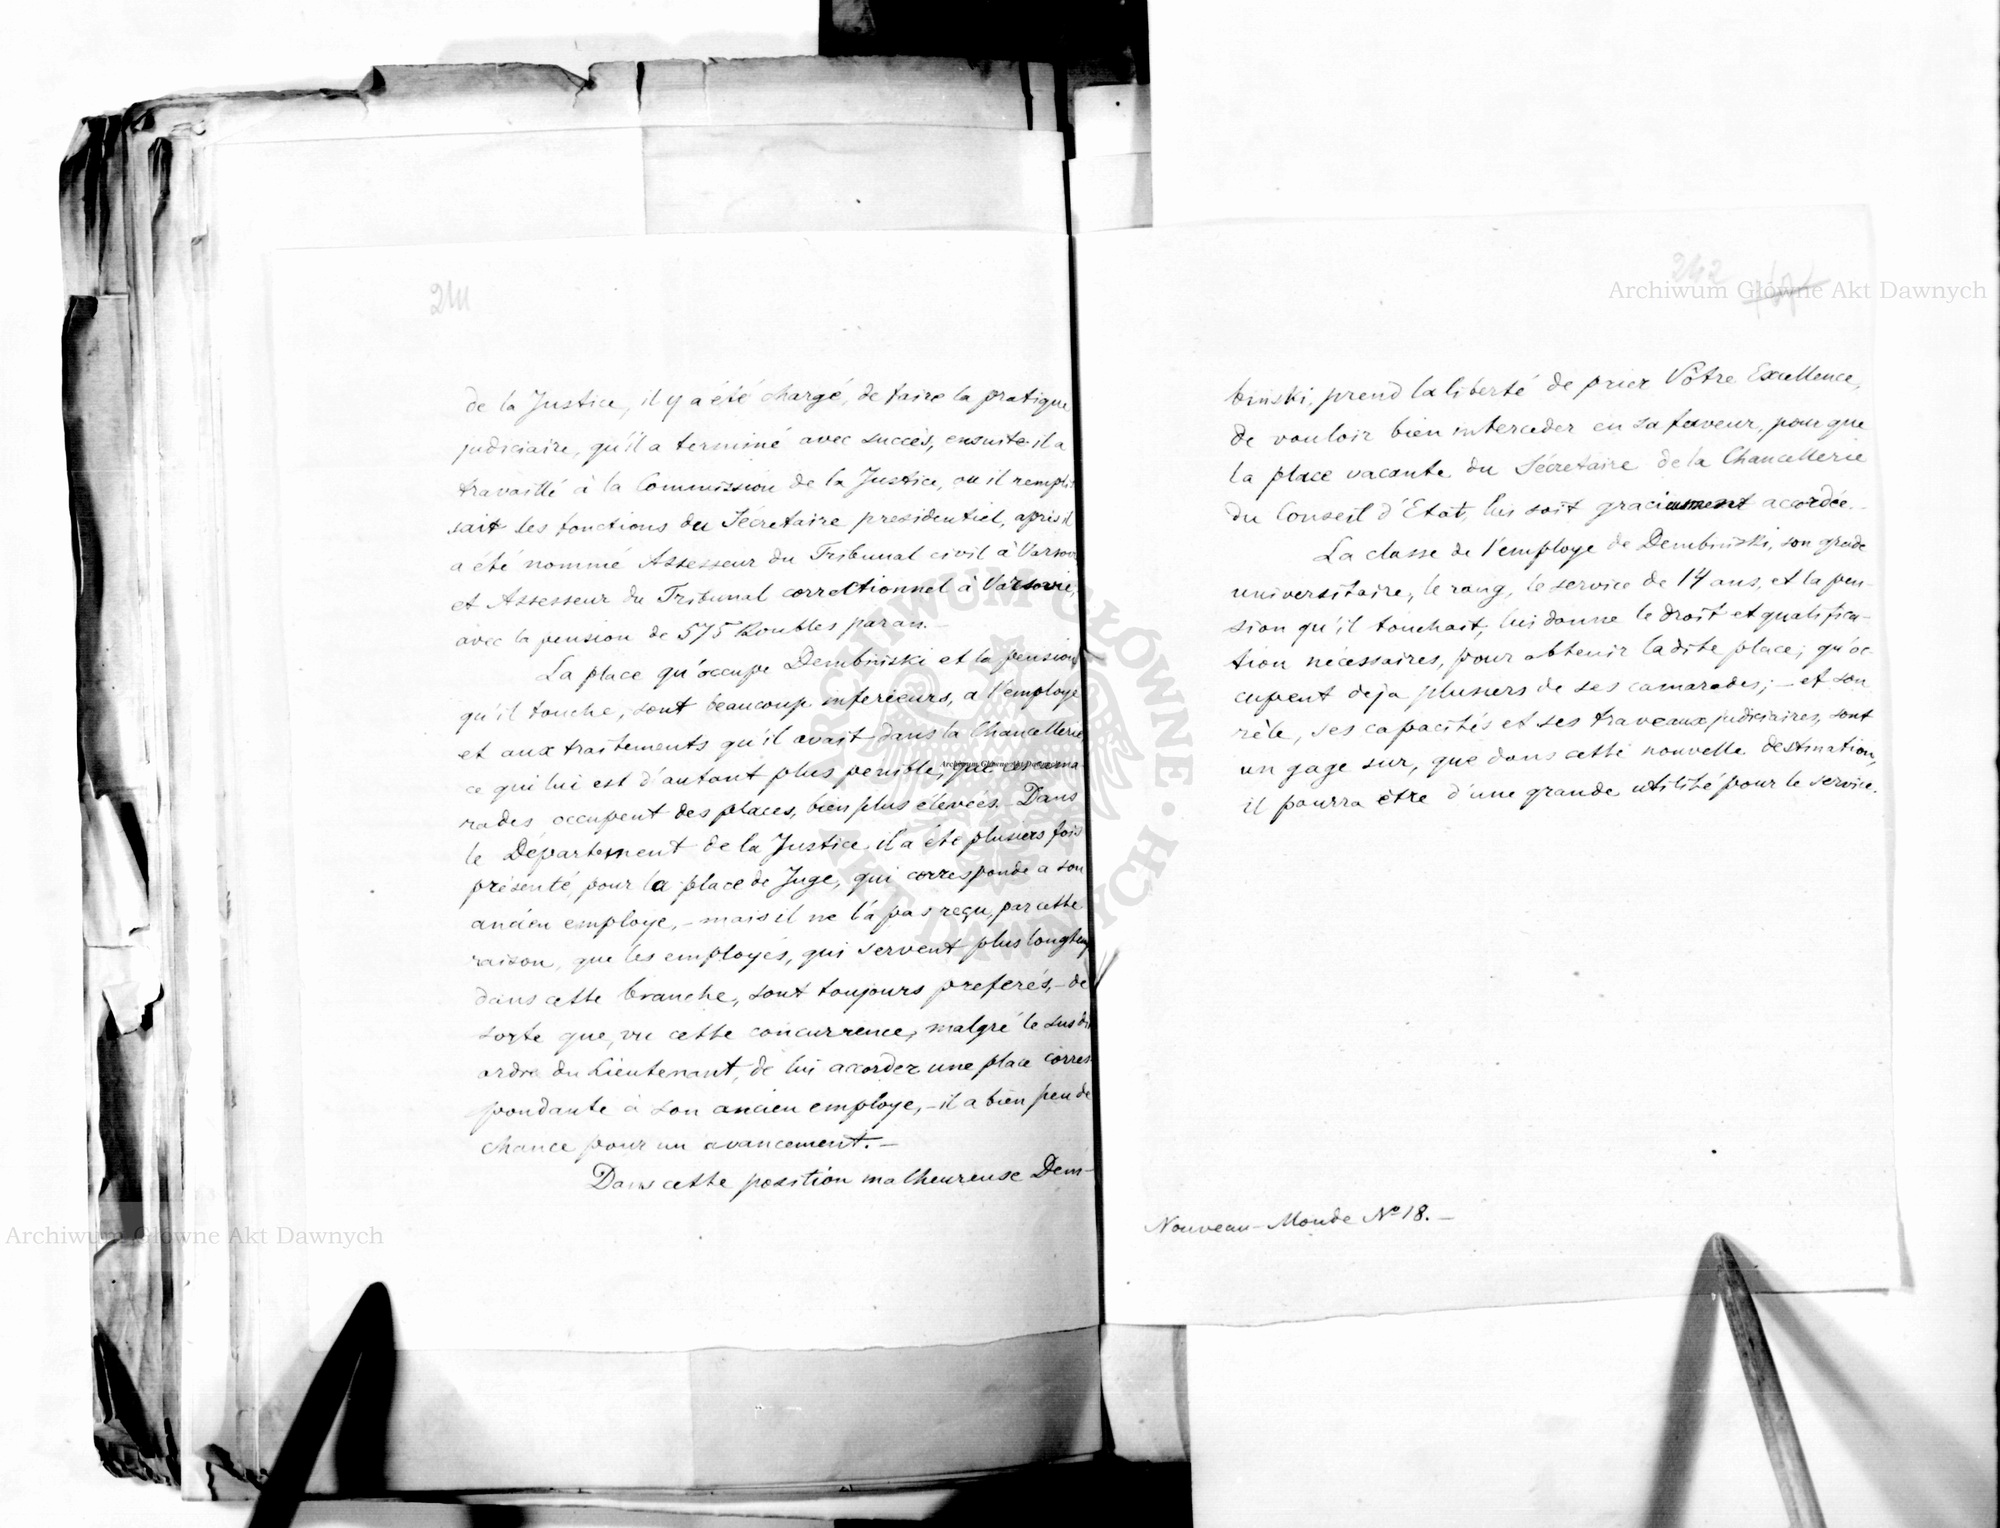 241
de la Justice, il y a été chargé, de faire la pratique
judiciaire, qu'il a terminé avec succès, ensuite il a
travaillé à la Commission de la Justice, ou il remplis
sait les fonctions du Sécretaire presidentiel, après il
a été nommé Assesseur du Tribunal civil à Varsovie
et Assesseur du Tribunal correctionnel à Varsovie,
avec la pension de 575 Roubles par an.—
La place qu'occupe Dembiński et la pension
qu'il touche, sont beaucoup inferieurs, a l'employe
et aux traitements qu'il avait dans la Chancellerie
ce qui lui est d'autant plus penible, que ces cama-
rades occupent des places, bien plus élevées. Dans
le Département de la Justice il a été plusiers fois
présenté, pour la place de Juge, qui corresponde a son
ancien employe,— mais il ne l'a pas reçu, par cette
raison, que les employés, qui servent plus longtemps
dans cette branche, sont toujours preferés,— de
sorte que, vu cette concurrence, malgré le susdit
ordre du Lieutenant, de lui accorder une place corres
pondante à son ancien employe,— il a bien peu de
chance pour un avancement.—
Dans cette position malheureuse Dem-
242
biński, prend la liberté de prier Vôtre Excellence,
de vouloir bien interceder en sa faveur, pour que
la place vacante du Sécretaire de la Chancellerie
du Conseil d'Etat, lui soit graciusment accordée.—
La classe de l'employe de Dembiński, son grade
universitaire, le rang, le service de 14 ans, et la pen-
sion qu'il touchait, lui donne le droit et qualifica-
tion nécessaires, pour obtenir ladite place; qu'oc
cupent deja plusiers de ses camarades;— et son
zèle, ses capacités et ses traveaux judiciaires, sont
un gage sur, que dans cette nouvelle destination,
il pourra être d'une grande utilité pour le service.
Nouveau-Monde No 18.—
Archiwum Główne Akt Dawnych
Archiwum Główne Akt Dawnych
Archiwum Główne Akt Dawnych
ARCHIWUM GŁÓWNE AKT DAWNYCH